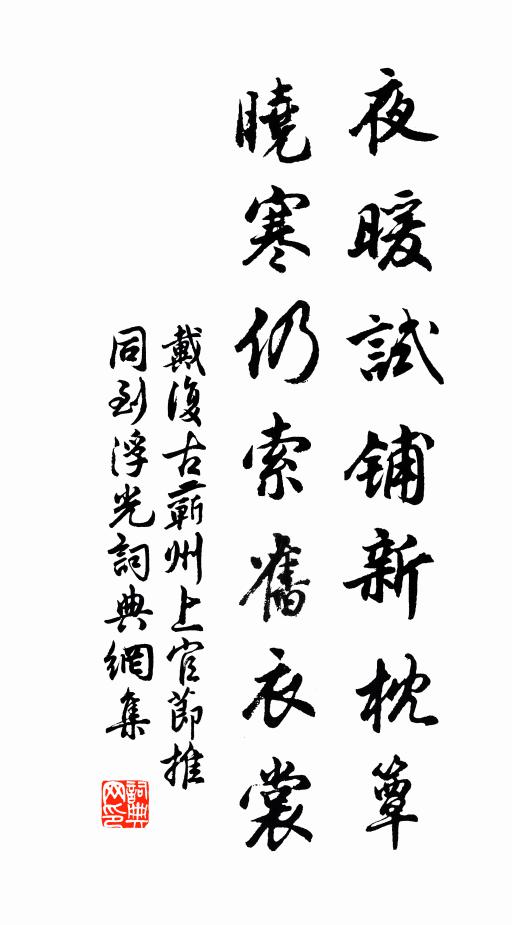 夜暖試鋪新枕簟
曉寒仍索舊衣裳
戴復古蘄州上官節推
同到浮光詞典網集
詞典网印